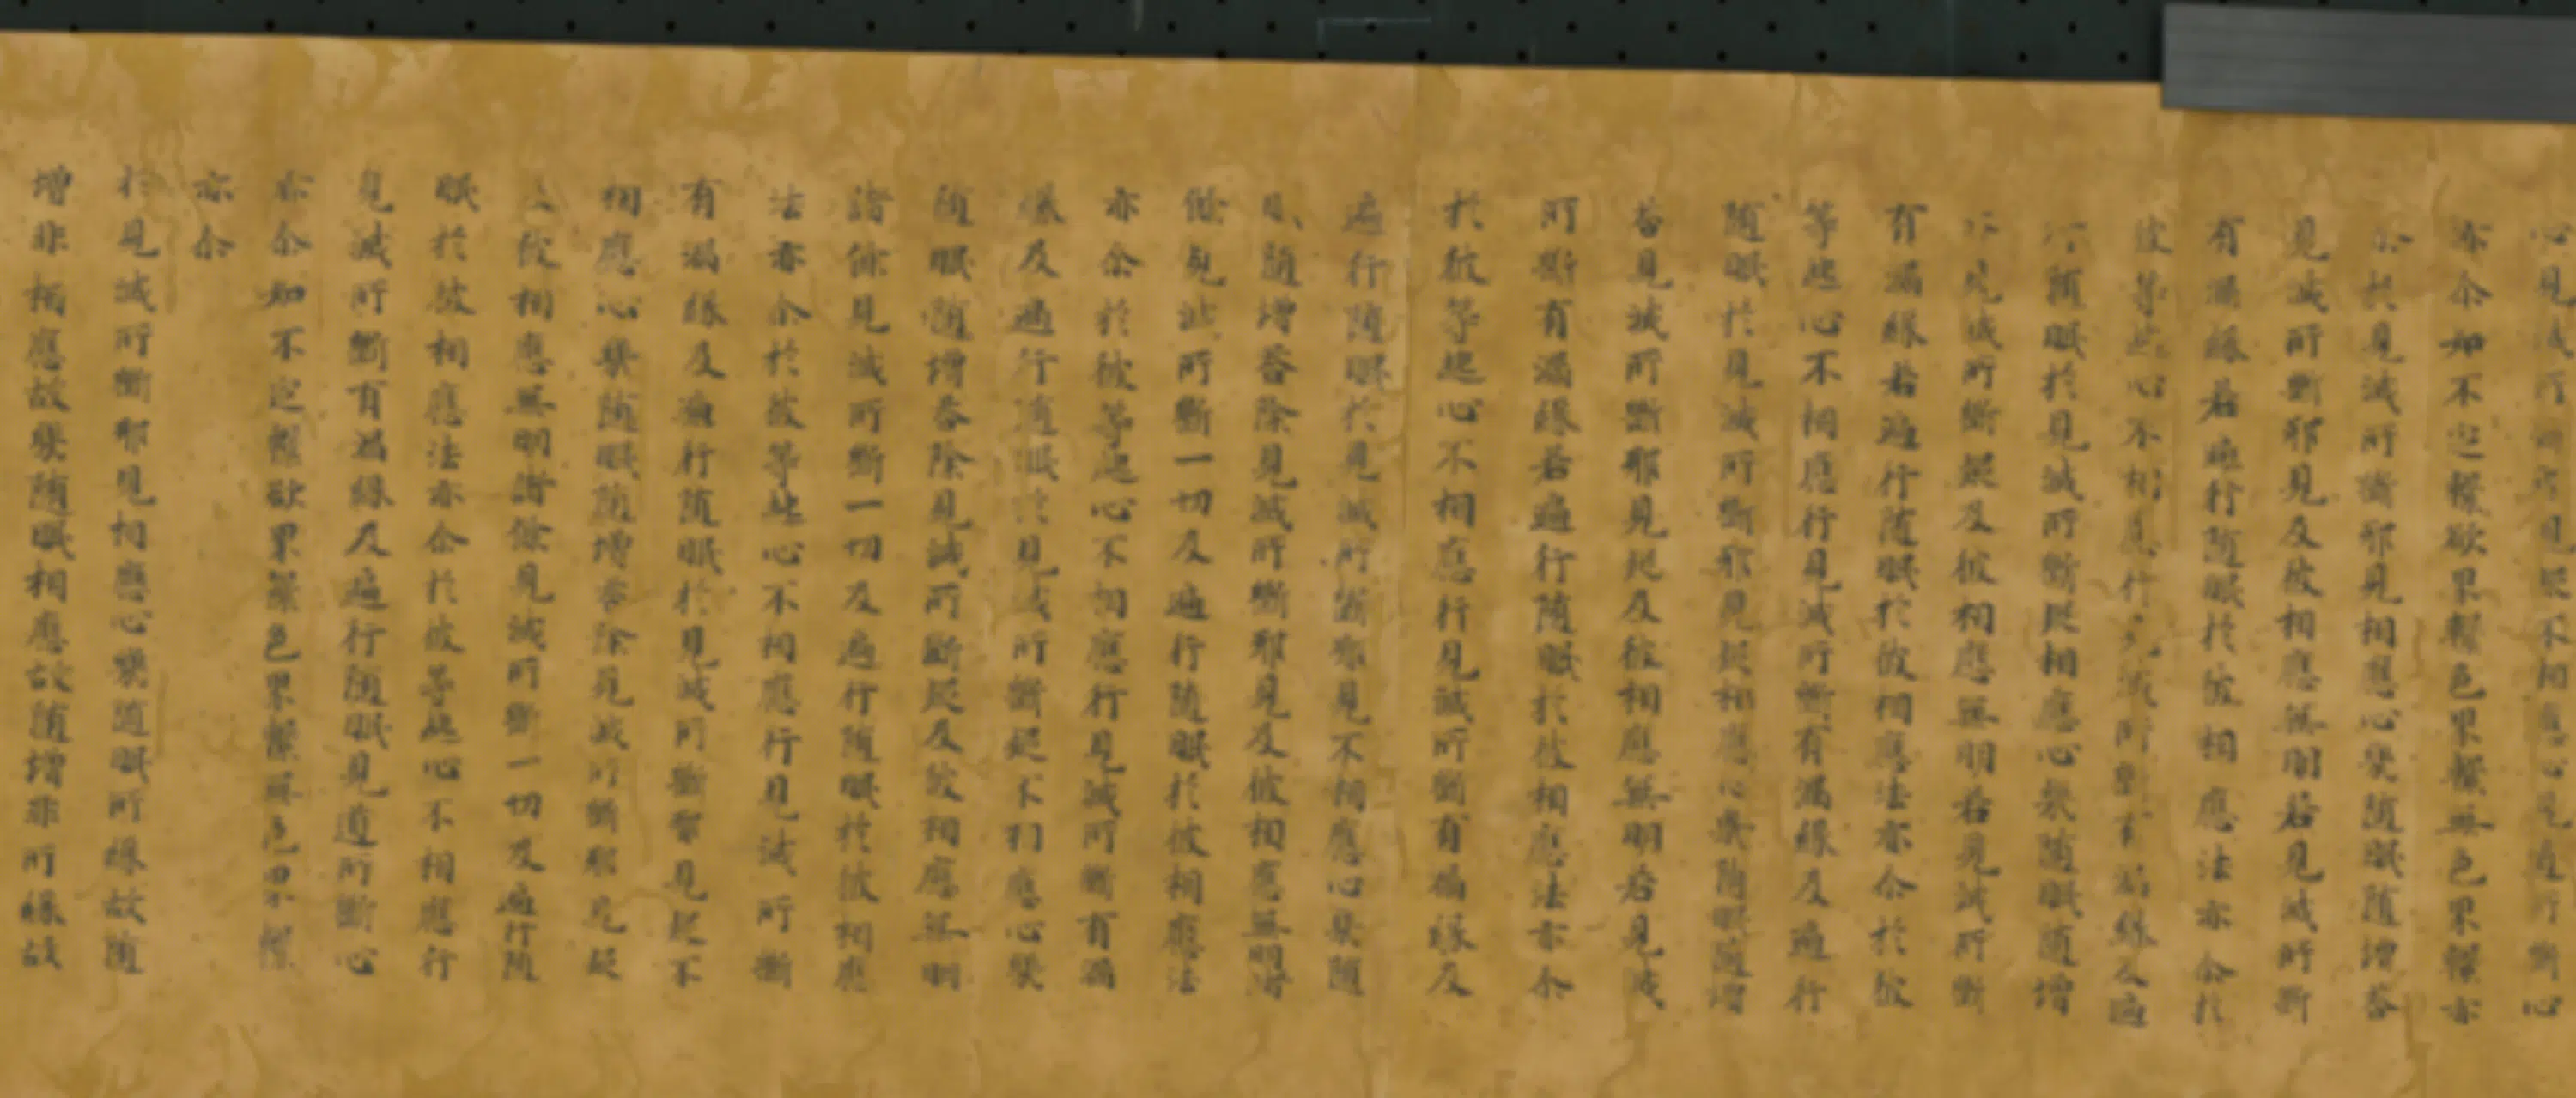 心見滅所斷邪見疑不相應心見道所斷心
亦尒如不定繫欲界繫色界繫無色界繫亦
尒於見滅所斷邪見相應心幾隨眠隨增荅
見滅所斷邪見及彼相應無明若見滅所斷
有漏緣若遍行隨眠於彼相應法亦尒於
彼等起心不相應行見滅所斷有漏緣及遍
行隨眠於見滅所斷疑相應心幾隨眠隨增
荅見滅所斷疑及彼相應無明若見滅所斷
有漏緣若遍行隨眠於彼相應法亦尒於彼
等起心不相應行見滅所斷有漏緣及遍行
隨眠於見滅所斷邪見疑相應心幾隨眠隨增
荅見滅所斷邪見疑及彼相應無明若見滅
所斷有漏緣若遍行隨眠於彼相應法亦尒
於彼等起心不相應行見滅所斷有漏緣及
遍行隨眠於見滅所斷邪見不相應心幾隨
眠隨增荅除見滅所斷邪見及彼相應無明諸
餘見滅所斷一切及遍行隨眠於彼相應法
亦尒於彼等起心不相應行見滅所斷有漏
緣及遍行隨眠於見滅所斷疑不相應心幾
隨眠隨增荅除見滅所斷疑及彼相應無明
諸餘見滅所斷一切及遍行隨眠於彼相應
法亦尒於彼等起心不相應行見滅所斷
有漏緣及遍行隨眠於見滅所斷邪見疑不
相應心幾隨眠隨增荅除見滅所斷邪見疑
及彼相應無明諸餘見滅所斷一切及遍行隨
眠於彼相應法亦尒於彼等起心不相應行
見滅所斷有漏緣及遍行隨眠見道所斷心
亦尒如不定繫欲界繫色界繫無色界繫
亦尒
於見滅所斷邪見相應心幾隨眠所緣故隨
增非相應故幾隨眠相應故隨增非所緣故